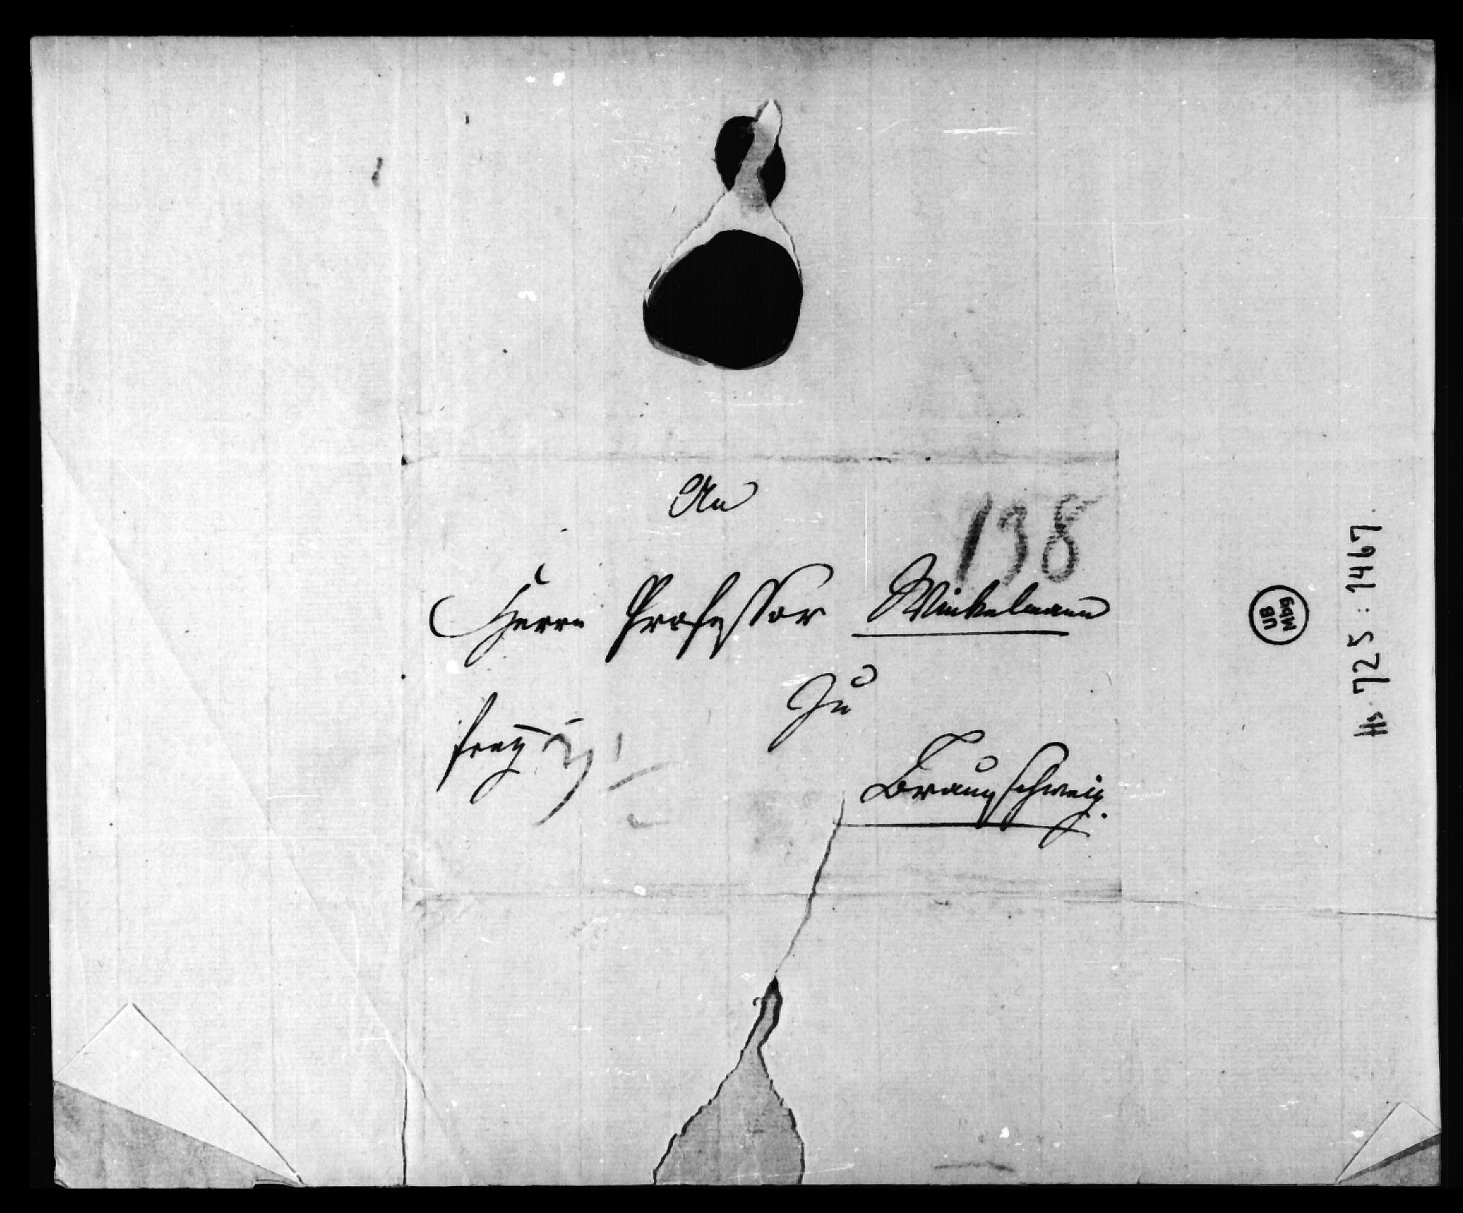 An
138
Herrn Professor Winkelmann
Zu
frey
Braunschweig.
UB
Mbg
Hs 725: 1467